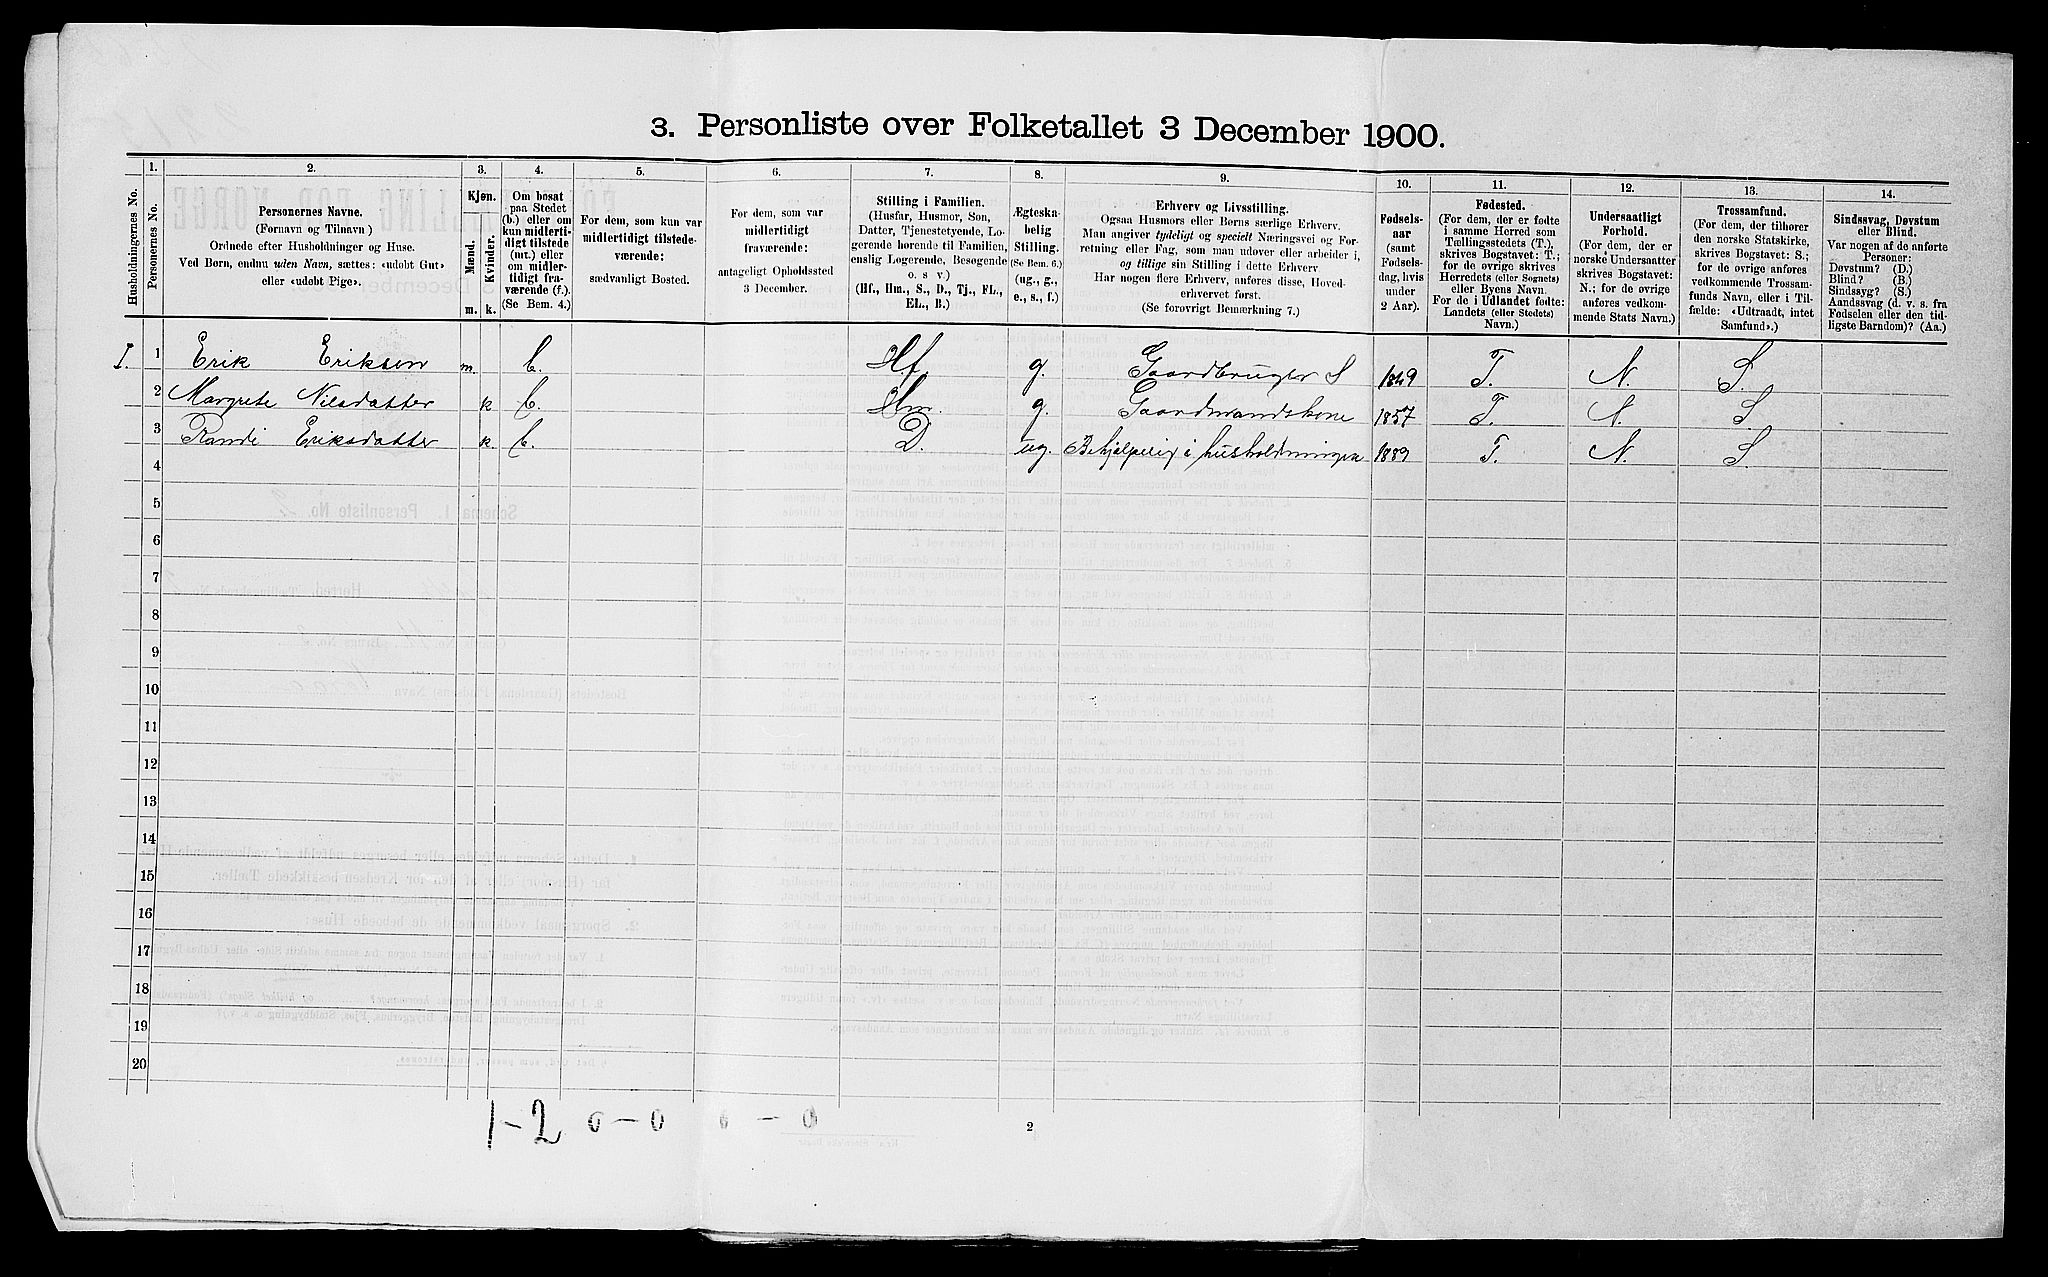 3. Personliste over Folketallet 3 December 1900.
1. 2. 3. 4. 5. 6. 7. 8. 9. 10. 11. 12. 13. 14.
Husholdningernes No.
Personernes No.
Personernes Navne.
(Fornavn og Tilnavn)
Ordnede efter Husholdninger og Huse.
Ved Børn, endnu uden Navn, sættes: «udøbt Gut»
eller «udøbt Pige».
Kjøn.
Mænd.
Kvinder.
m. k.
Om bosat
paa Stedet
(b.) eller om
kun midler-
tidigt tilstede
(mt.) eller
om midler-
tidigt fra-
værende (f.).
(Se Bem. 4.)
For dem, som kun var
midlertidigt tilstede-
værende:
sædvanligt Bosted.
For dem, som var
midlertidigt
fraværende:
antageligt Opholdssted
3 December.
Stilling i Familien.
(Husfar, Husmor, Søn,
Datter, Tjenestetyende, Lo-
gerende hørende til Familien,
enslig Logerende, Besøgende
o. s v.)
(Hf., Hm., S., D., Tj., FL.,
EL., B.)
Ægteska-
belig
Stilling.
(Se Bem. 6.)
(ug., g.,
e., s., f.)
Erhverv og Livsstilling.
Ogsaa Husmors eller Børns særlige Erhverv.
Man angiver tydeligt og specielt Næringsvei og For-
retning eller Fag, som man udøver eller arbeider i,
og tillige sin Stilling i dette Erhverv
Har nogen flere Erhverv, anføres disse, Hoved-
erhvervet først.
(Se forøvrigt Bemærkning 7.)
Fødsels-
aar
(samt
Fødsels-
dag, hvis
under
2 Aar).
Fødested.
(For dem, der er fødte
i samme Herred som
Tællingsstedets (T.),
skrives Bogstavet: T.;
for de øvrige skrives
Herredets (eller Sognets)
eller Byens Navn.
For de i Udlandet fødte:
Landets (eller Stedets)
Navn.)
Undersaatligt
Forhold.
(For dem, der er
norske Undersaatter
skrives Bogstavet:
N.; for de øvrige
anføres vedkom-
mende Stats Navn.)
Trossamfund.
(For dem, der tilhører
den norske Statskirke,
skrives Bogstavet: S.;
for de øvrige anføres
vedkommende Trossam-
funds Navn, eller i Til-
fælde: «Udtraadt, intet
Samfund».)
Sindssvag, Døvstum
eller Blind.
Var nogen af de anførte
Personer:
Døvstum? (D.)
Blind? (B.)
Sindssyg? (S.)
Aandssvag (d. v. s. fra
Fødselen eller den tid-
ligste Barndom)? (Aa.)
I. 1 Erik Eriksen m. b. Hf. g. Gaardbruger S 1849 T. N. S.
2 Margrete Nilsdatter k b. Hm. g. Gaardmandskone 1857 T. N. S
3 Randi Eriksdatter k. b. D. ug. Behjælpelig i husholdningen 1889 T. N. S.
4
5
6
7
8
9
10
11
12
13
14
15
16
17
18
19
20
1-2 0-0 0-0
2